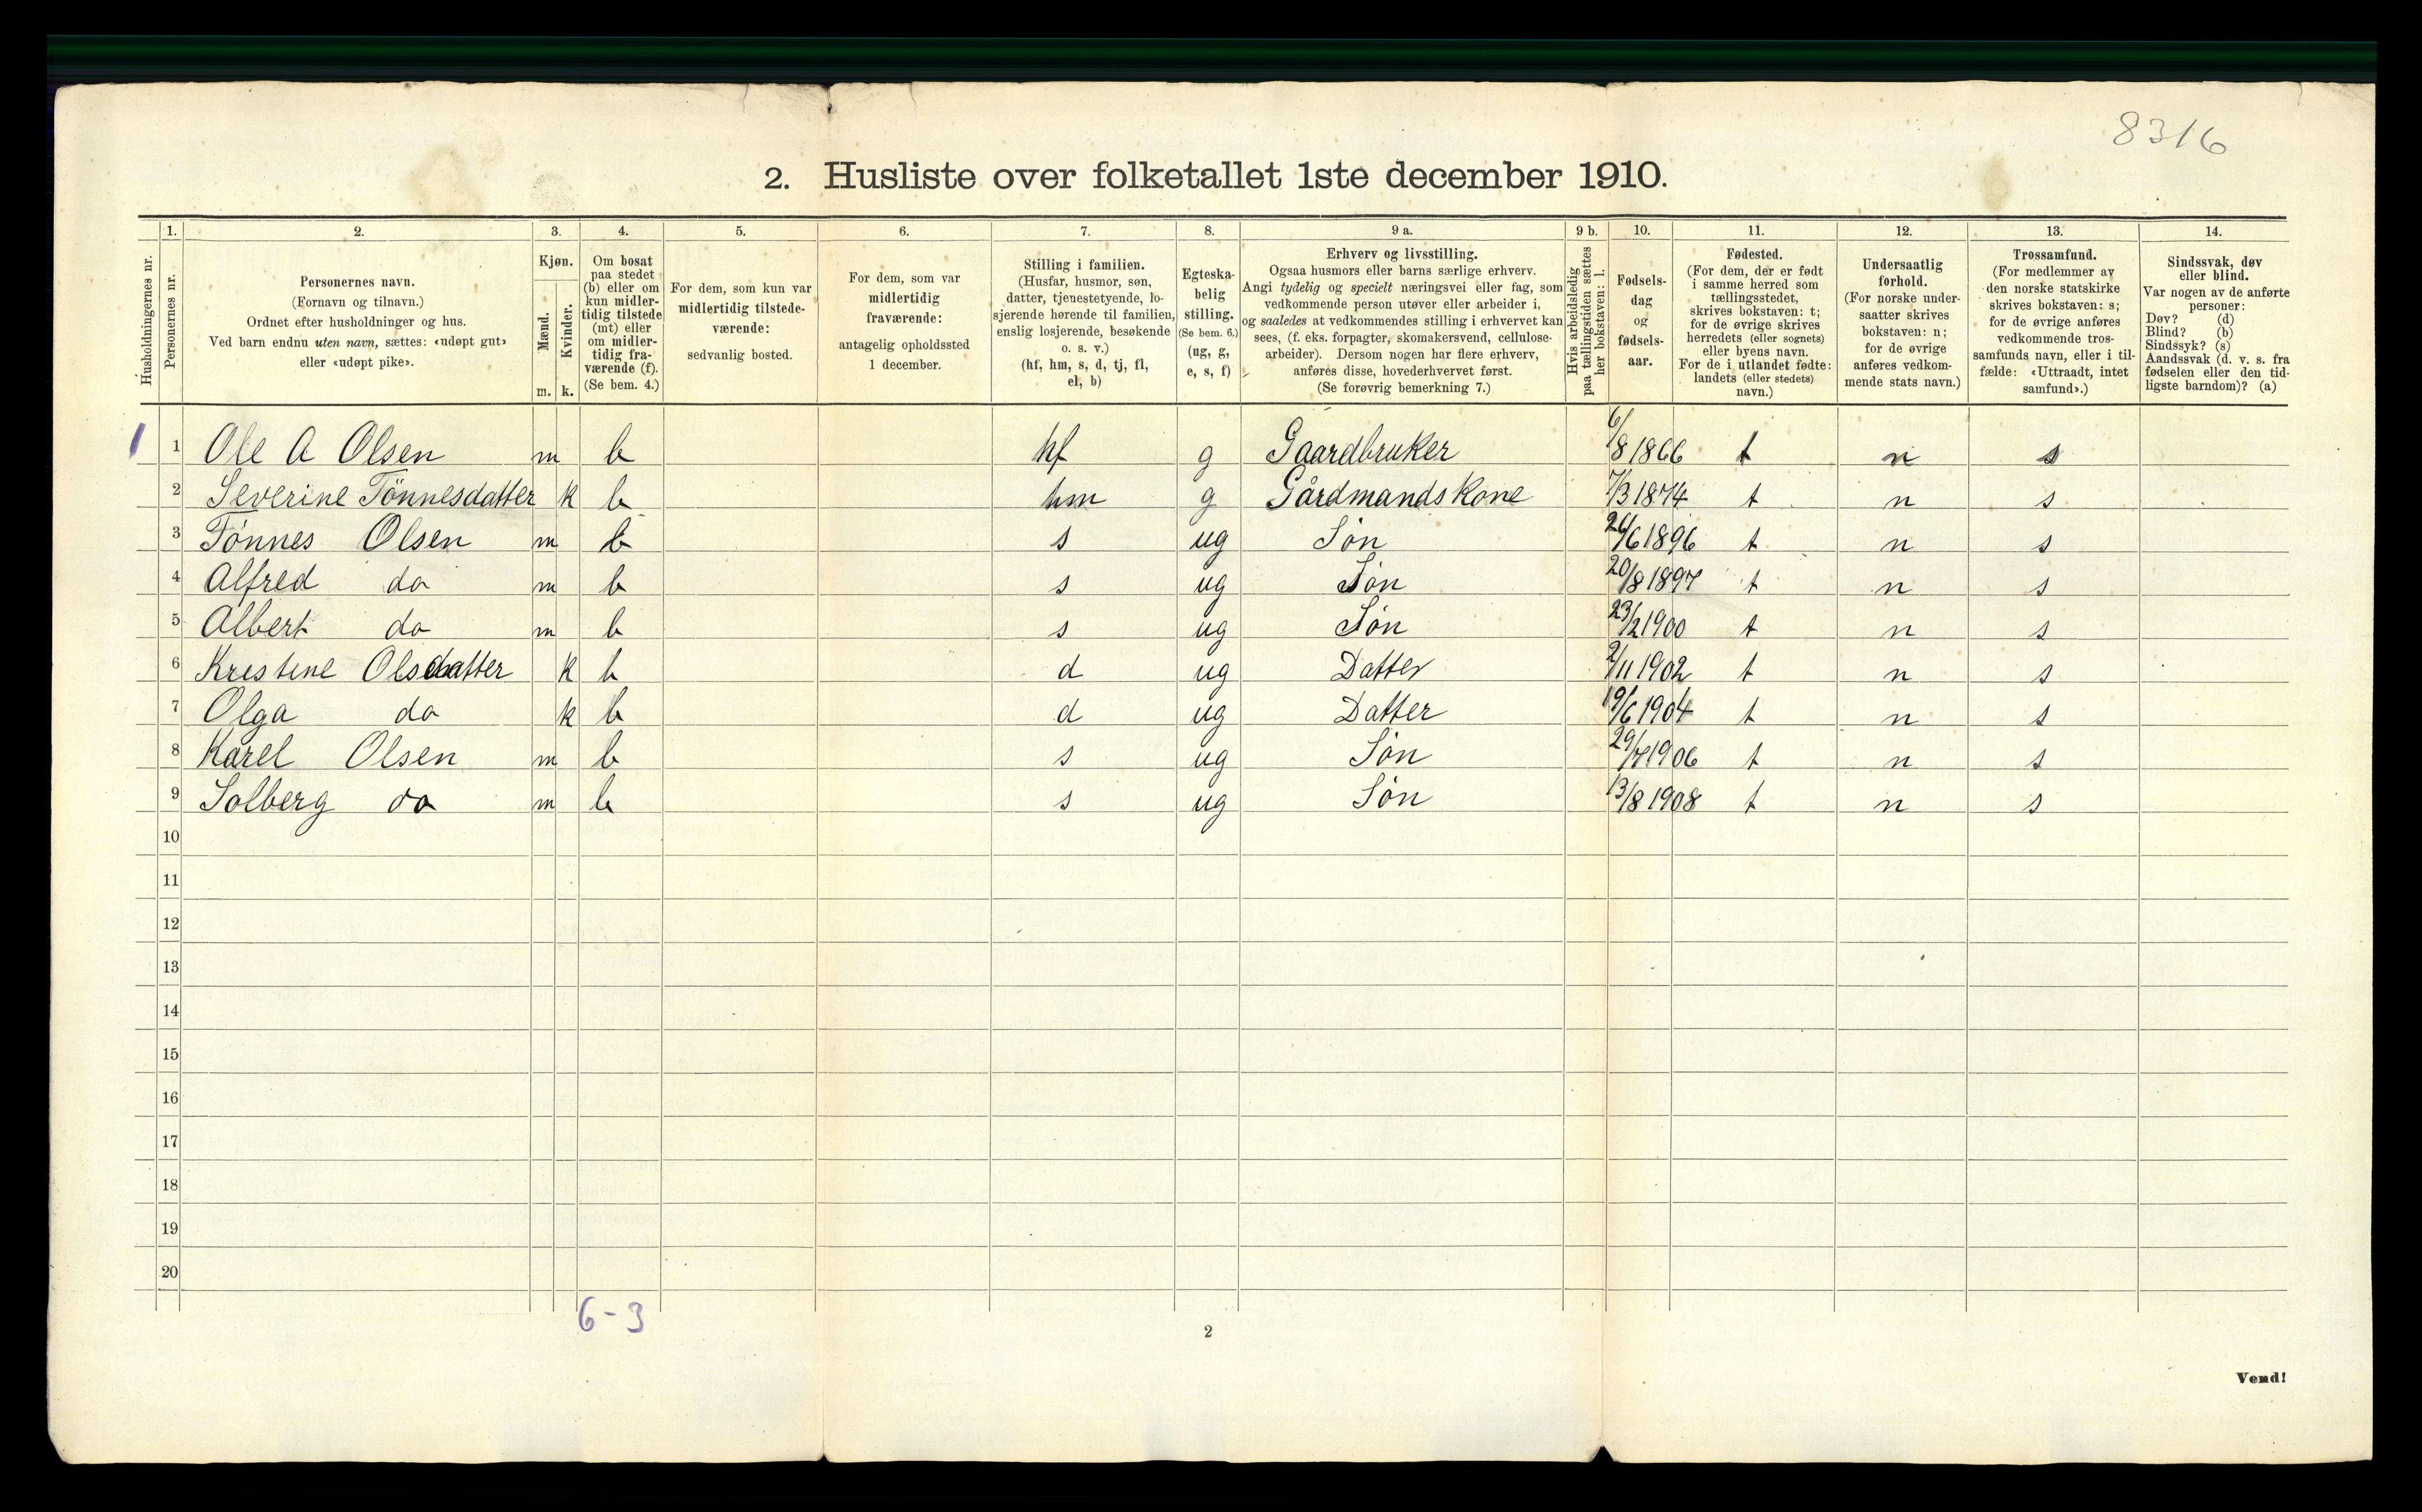 8316
2. Husliste over folketallet 1ste december 1910.
Husholdningernes nr.
1.
Personernes nr.
2.
Personernes navn.
(Fornavn og tilnavn.)
Ordnet efter husholdninger og hus.
Ved barn endnu uten navn, sættes: «udøpt gut»
eller «udøpt pike».
3.
Kjøn.
Mænd.
m.
Kvinder.
k.
4.
Om bosat
paa stedet
(b) eller om
kun midler-
tidig tilstede
(mt) eller
om midler-
tidig fra-
værende (f).
(Se bem. 4.)
5.
For dem, som kun var
midlertidig tilstede-
værende:
sedvanlig bosted.
6.
For dem, som var
midlertidig
fraværende:
antagelig opholdssted
1 december.
7.
Stilling i familien.
(Husfar, husmor, søn,
datter, tjenestetyende, lo-
sjerende hørende til familien,
enslig losjerende, besøkende
o. s. v.)
(hf, hm, s, d, tj, fl,
el, b)
8.
Egteska-
belig
stilling.
(Se bem. 6.)
(ug, g,
e, s, f)
9 a.
Erhverv og livsstilling.
Ogsaa husmors eller barns særlige erhverv.
Angi tydelig og specielt næringsvei eller fag, som
vedkommende person utøver eller arbeider i,
og saaledes at vedkommendes stilling i erhvervet kan
sees, (f. eks. forpagter, skomakersvend, cellulose-
arbeider). Dersom nogen har flere erhverv,
anføres disse, hovederhvervet først.
(Se forøvrig bemerkning 7.)
9 b.
Hvis arbeidsledig
paa tællingstiden sættes
her bokstaven: l.
10.
Fødsels-
dag
og
fødsels-
aar.
11.
Fødested.
(For dem, der er født
i samme herred som
tællingsstedet,
skrives bokstaven: t;
for de øvrige skrives
herredets (eller sognets)
eller byens navn.
For de i utlandet fødte:
landets (eller stedets)
navn.)
12.
Undersaatlig
forhold.
(For norske under-
saatter skrives
bokstaven: n;
for de øvrige
anføres vedkom-
mende stats navn.)
13.
Trossamfund.
(For medlemmer av
den norske statskirke
skrives bokstaven: s;
for de øvrige anføres
vedkommende tros-
samfunds navn, eller i til-
fælde: «Uttraadt, intet
samfund».)
14.
Sindssvak, døv
eller blind.
Var nogen av de anførte
personer:
Døv? (d)
Blind? (b)
Sindssyk? (s)
Aandssvak (d. v. s. fra
fødselen eller den tid-
ligste barndom)? (a)
1 1 Ole A Olsen m b hf g Gaardbruker 6/8 1866 t n s
2 Severine Tönnesdatter k b hm g Gårdmandskone 7/3 1874 t n s
3 Tönnes Olsen m b s ug Sön 26/6 1896 t n s
4 Alfred do m b s ug Sön 20/8 1897 t n s
5 Albert do m b s ug Sön 23/2 1900 t n s
6 Kristine Olsdatter k b d ug Datter 2/11 1902 t n s
7 Olga do k b d ug Datter 19/6 1904 t n s
8 Karel Olsen m b s ug Sön 29/7 1906 t n s
9 Solberg do m b s ug Sön 13/8 1908 t n s
10
11
12
13
14
15
16
17
18
19
20
6-3
2
Vend!